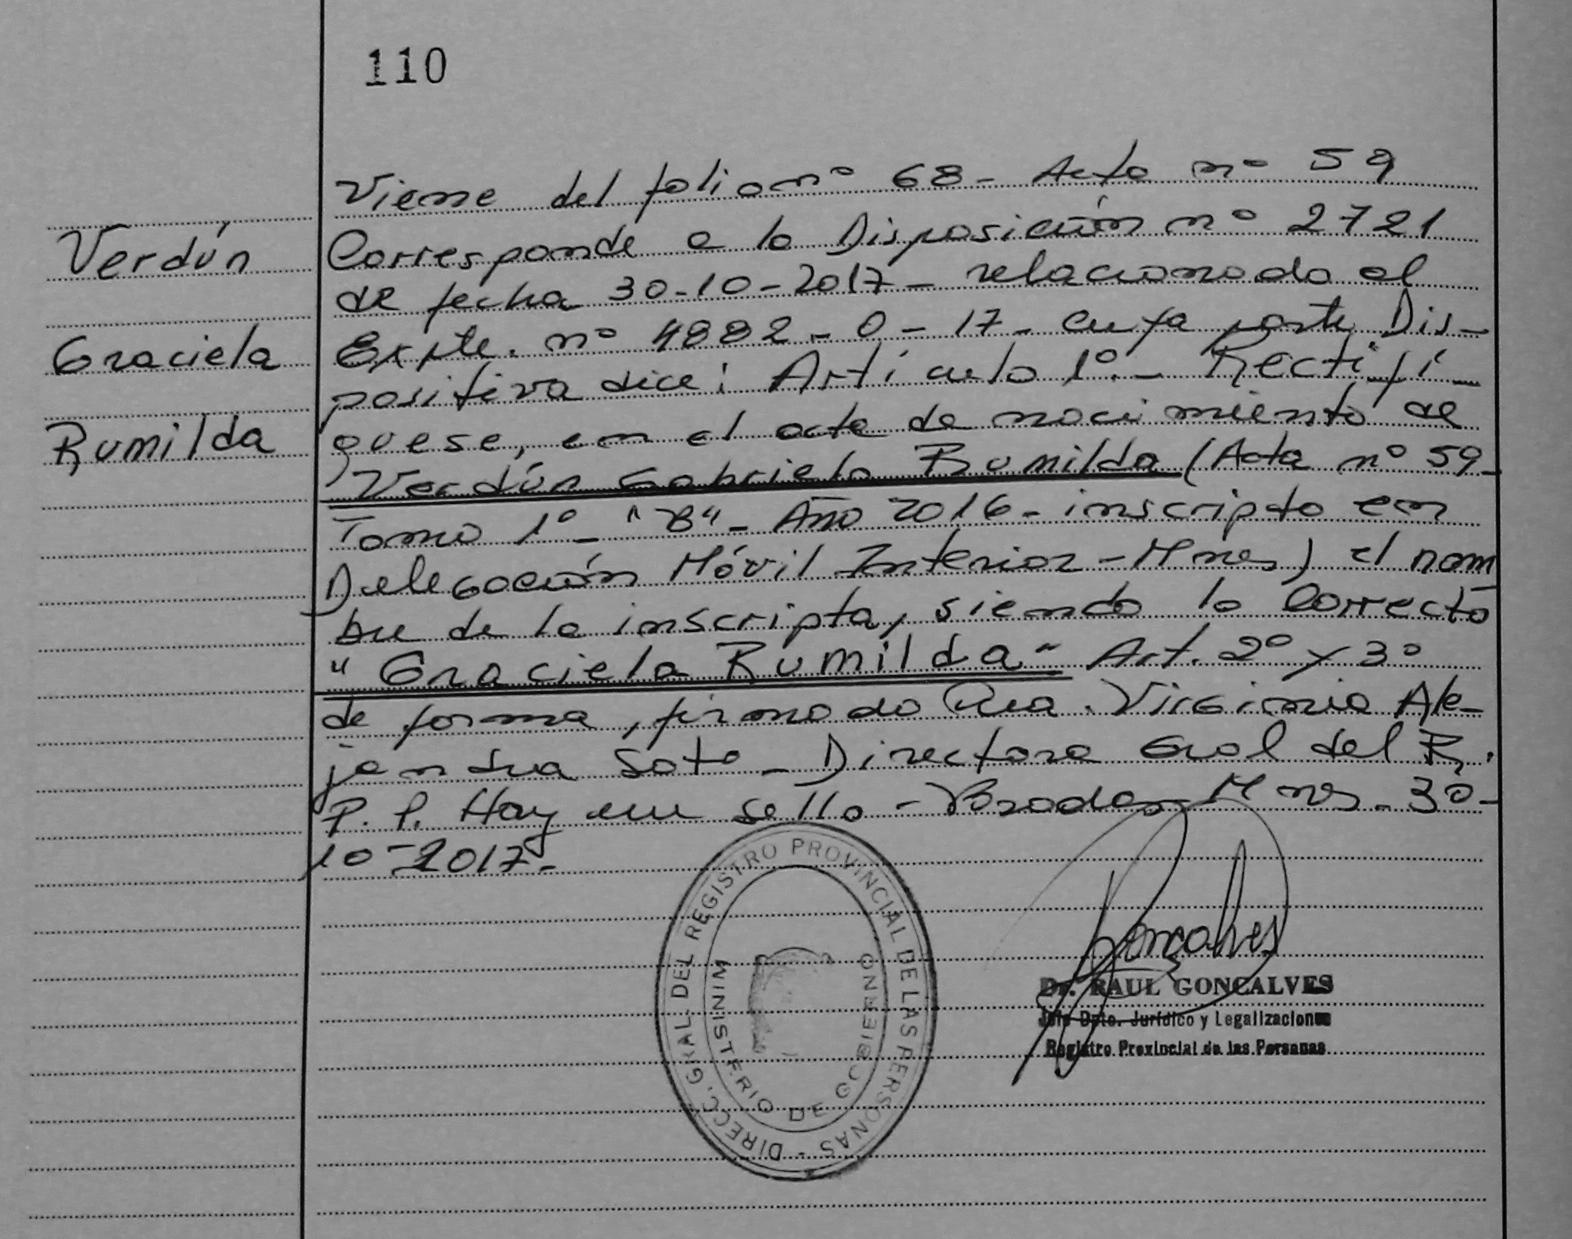 110
Verdún
Graciela
Rumilda
Viene del folio nº 68 - Acta nº 59
Corresponde a la Disposición nº 2721
de fecha 30-10-2017 - relacionado al
Expte. nº 4882 - 0 - 17 - cuya parte Dis-
positiva dice: Artículo 1º - Rectifí-
quese, en el acta de nacimiento de
Verdún Gabriela Rumilda (Acta nº 59 -
Tomo 1º - "B" - Año 2016 - inscripto en
Delegación Móvil Interior - Mnes) el nom
bre de la inscripta, siendo lo Correcto
"Graciela Rumilda" Art. 2º y 3º
de forma, firmado Dra. Virginia Ale-
jandra Soto - Directora Gral del R.
P. P. Hay un sello - Posadas Mnes - 30 -
10 - 2017 -
DIRECC. GRAL. DEL REGISTRO PROVINCIAL DE LAS PERSONAS -
MINISTERIO DE GOBIERNO
Goncalves
Dr. RAUL GONCALVES
Jefe Dpto. Jurídico y Legalizaciones
Registro Provincial de las Personas